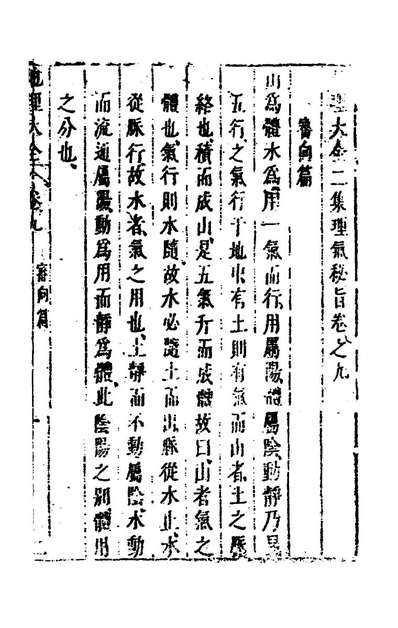 理大全二集理氣秘旨卷之九
審向篇
山為體水為用一氣而行用屬陽體屬陰動靜乃見
五行之氣行于地中有土則有氣而山者土之脈
絡也積而成山是五氣行而成體故曰山者氣之
體也氣行則水隨故水必隨土而出脈從水止水
從脈行故水者氣之用也土靜而不動屬陰水動
而流通屬陽動為用而靜為體此陰陽之別體用
之分也
地理大全二集卷九
審向篇
一